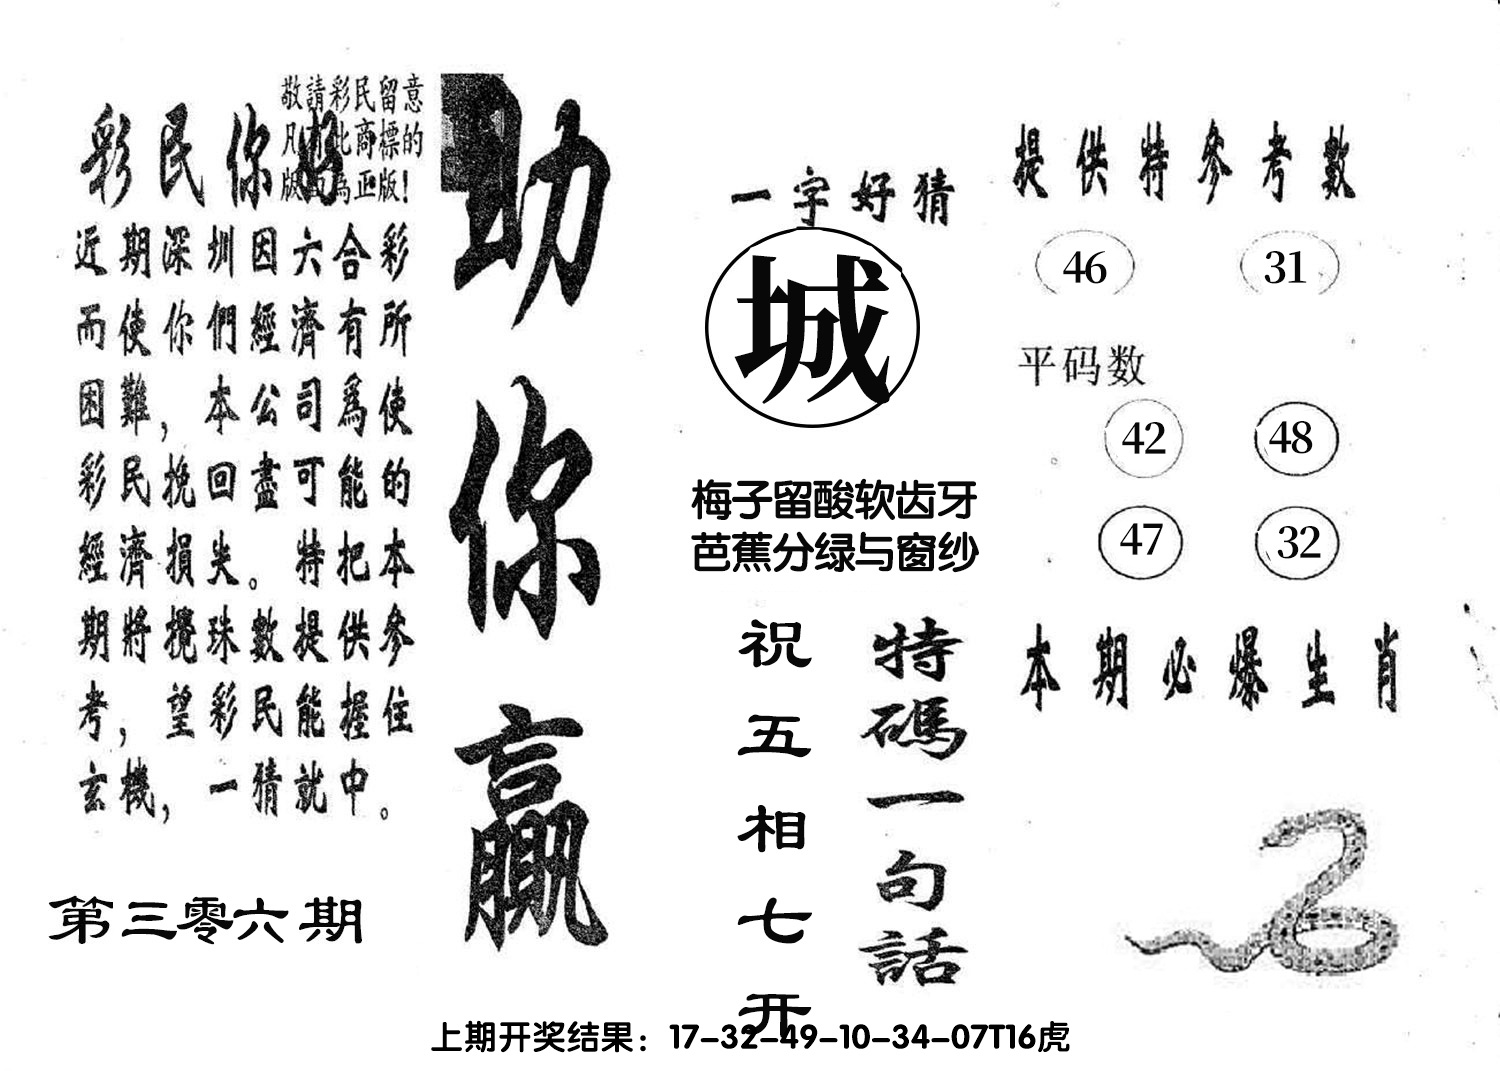 敬請彩民留意
凡有此商標的
版面為正版！
彩民你好
近期深圳因六合彩
而使你們經濟有所
困難，本公司爲使
彩民挽回盡可能的
經濟損失。特把本
期將攪珠數提供參
考，望彩民能握住
玄機，一猜就中。
第三零六期
助你贏
一字好猜
城
梅子留酸软齿牙
芭蕉分绿与窗纱
特碼一句話
祝五相七开
提供特參考數
46 31
平码数
42 48
47 32
本期必爆生肖
上期开奖结果：17-32-49-10-34-07T16虎